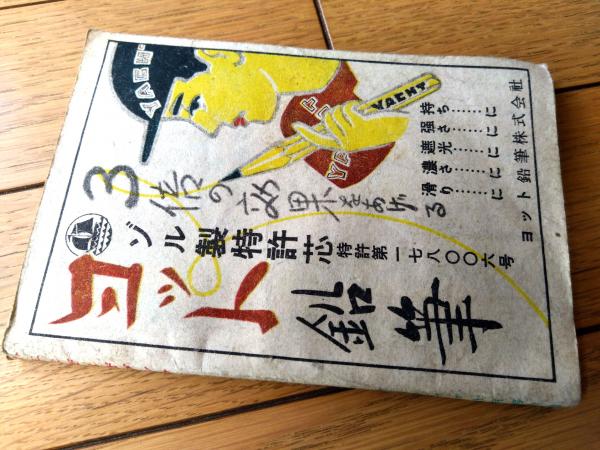 YACHT
YACHT
持ち……に
强さ……に
遮光……に
濃さ……に
滑り……に
ヨット鉛筆株式会社
3倍の効果をあげる
ゾル製特許芯
特許第一七八〇〇六号
ヨット
鉛筆